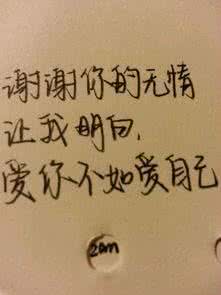 谢谢你的无情
让我明白,
爱你不如爱自己